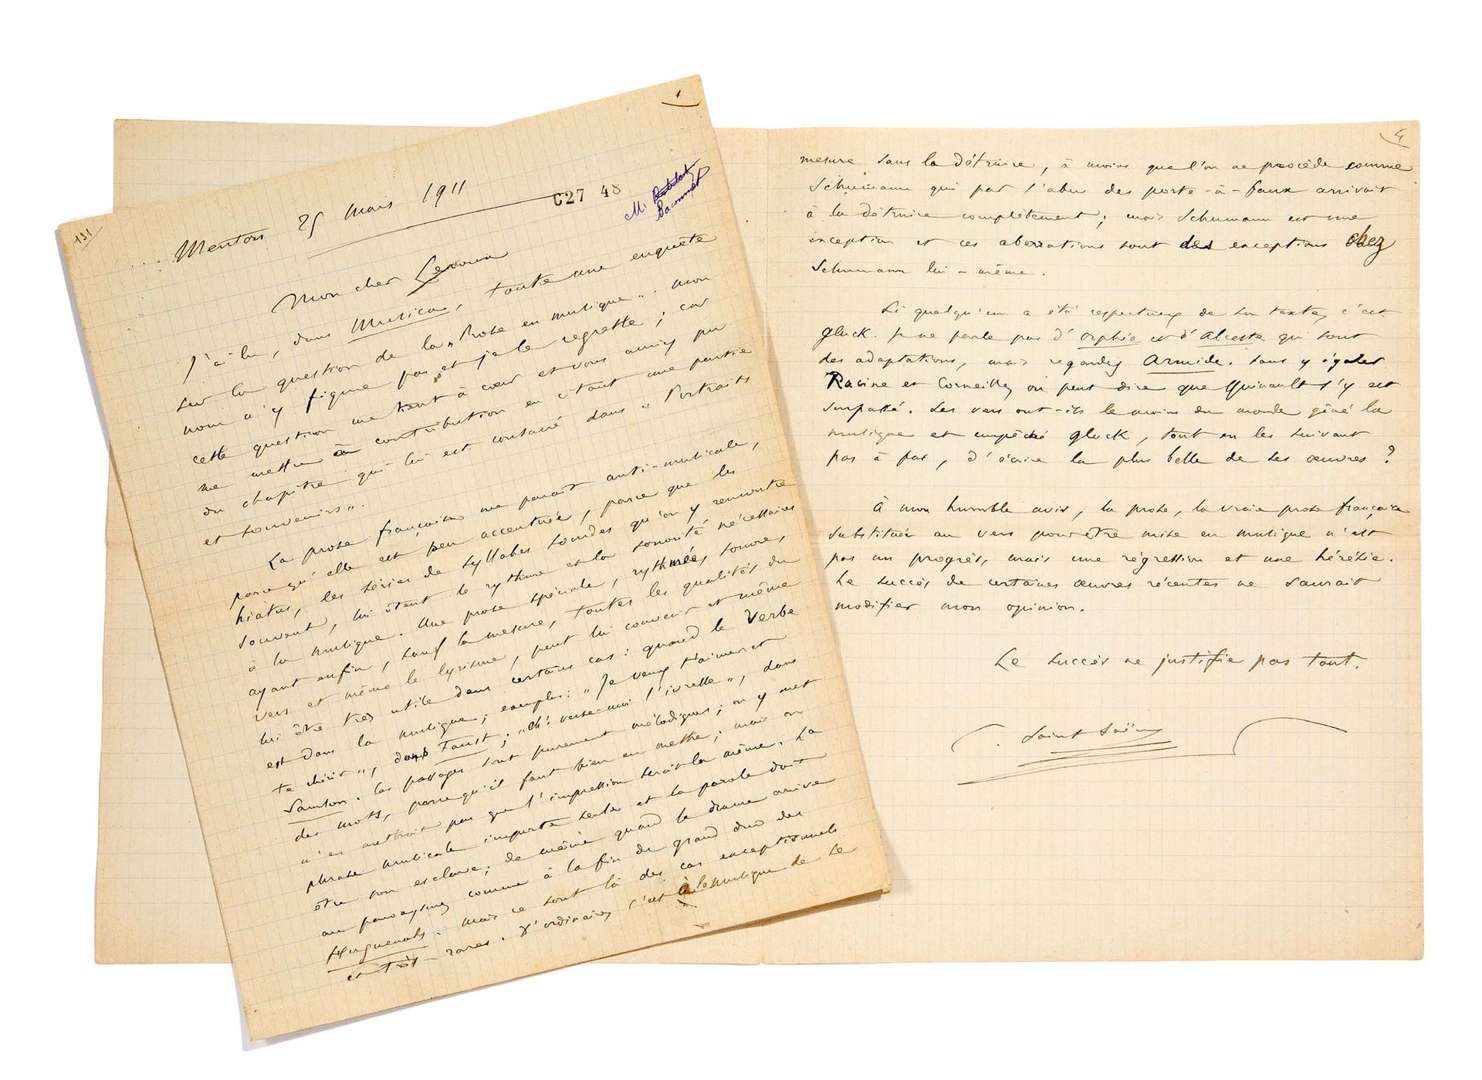 1
131
Menton 25 mars 1911
C27 48
Mon cher
J'ai lu, dans Musica, toute une enquête
sur la question de la "Prose en musique". Mon
nom n'y figure pas et je le regrette ; car
cette question me tient à cœur et vous auriez pu
me mettre à contribution en citant une partie
du chapitre qui lui est consacré dans "Portraits
et Souvenirs".
La prose française me paraît anti-musicale,
parce qu'elle est peu accentuée, parce que les
hiatus, les séries de syllabes sourdes qu'on y rencontre
souvent, lui ôtent le rythme et la sonorité nécessaires
à la musique. Une prose spéciale, rythmée, sonore,
ayant enfin, sauf la mesure, toutes les qualités du
vers et même le lyrisme, peut lui convenir et même
lui être très utile dans certains cas : quand le Verbe
est dans la musique ; exemples : "Je veux t'aimer et
te chérir", dans Faust ; "Ah! verse-moi l'ivresse", dans
Samson. Ces passages sont purement mélodiques ; on y met
des mots, parce qu'il faut bien en mettre ; mais on
n'en mettrait pas que l'impression serait la même. La
phrase musicale importe seule et la parole doit
être son esclave ; de même quand le drame arrive
au paroxysme comme à la fin du grand duo des
Huguenots. Mais ce sont là des cas exceptionnels
et très rares. D'ordinaire, c'est à la musique de se
4
mesure sans la détruire, à moins que l'on ne procède comme
Schumann qui par l'abus des porte-à-faux arrivait
à la détruire complètement ; mais Schumann est une
exception et ces aberrations sont des exceptions chez
Schumann lui-même.
Si quelqu'un a été respectueux de son texte, c'est
Gluck. Je ne parle pas d'Orphée et d'Alceste qui sont
des adaptations, mais regardez Armide. Sans y égaler
Racine et Corneille, on peut dire que Quinault s'y est
surpassé. Les vers ont-ils le moins du monde gêné la
musique et empêché Gluck, tout en les suivant
pas à pas, d'écrire la plus belle de ses œuvres ?
À mon humble avis, la prose, la vraie prose française
substituée au vers pour être mise en musique n'est
pas un progrès, mais une régression et une hérésie.
Le succès de certaines œuvres récentes ne saurait
modifier mon opinion.
Le succès ne justifie pas tout.
C. Saint-Saëns